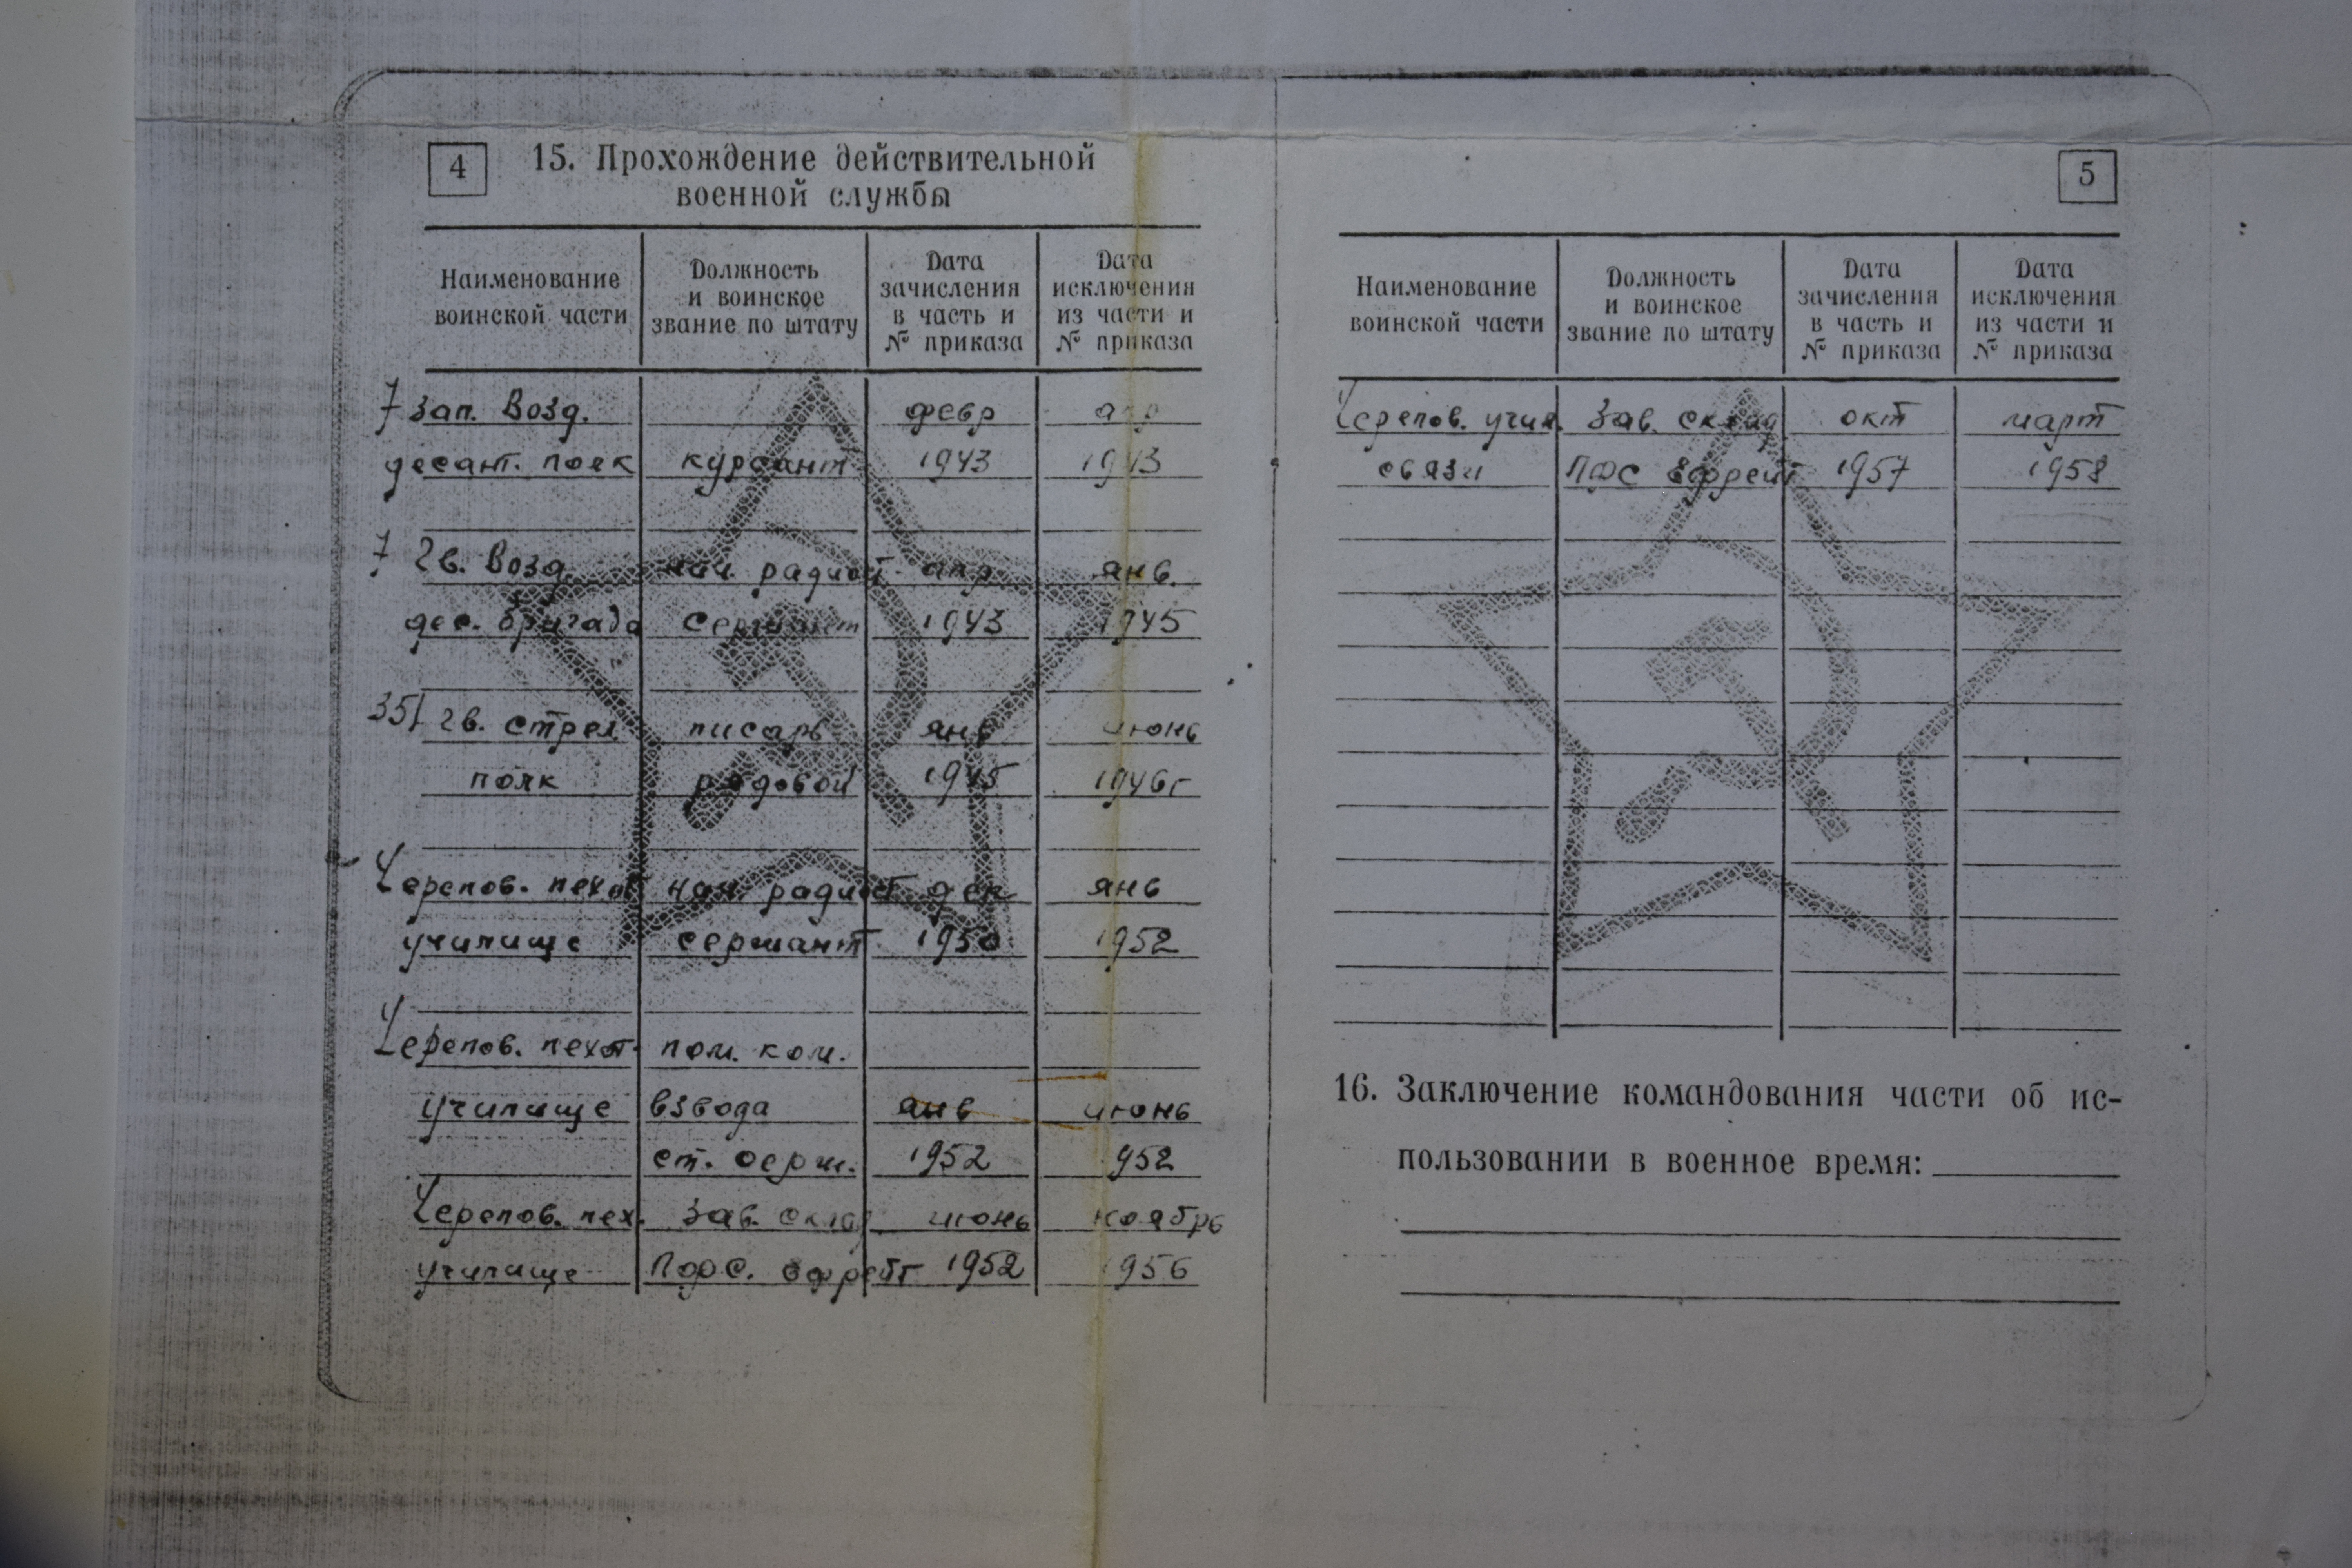 4
15. Прохождение действительной
военной службы
Наименование
воинской части
Должность
и воинское
звание по штату
Дата
зачисления
в часть и
№ приказа
Дата
исключения
из части и
№ приказа
7 зап. Возд. февр апр
десант. полк курсант 1943 1943
7 Гв. Возд. нач. радиост. апр янв.
дес. бригада сержант 1943 1945
351 гв. стрел. писарь янв июнь
полк рядовой 1945 1946г
Черепов. пехот нач. радиост дек янв
училище сержант 1950 1952
Черепов. пехот. пом. ком.
училище взвода янв июнь
ст. серж. 1952 952
Черепов. пех. Зав. склад июнь ноябрь
училище ПФС. ефрейт 1952 1956
5
Наименование
воинской части
Должность
и воинское
звание по штату
Дата
зачисления
в часть и
№ приказа
Дата
исключения
из части и
№ приказа
Черепов. учил. Зав. склад окт март
связи ПФС ефрейт 1957 1958
16. Заключение командования части об ис-
пользовании в военное время: